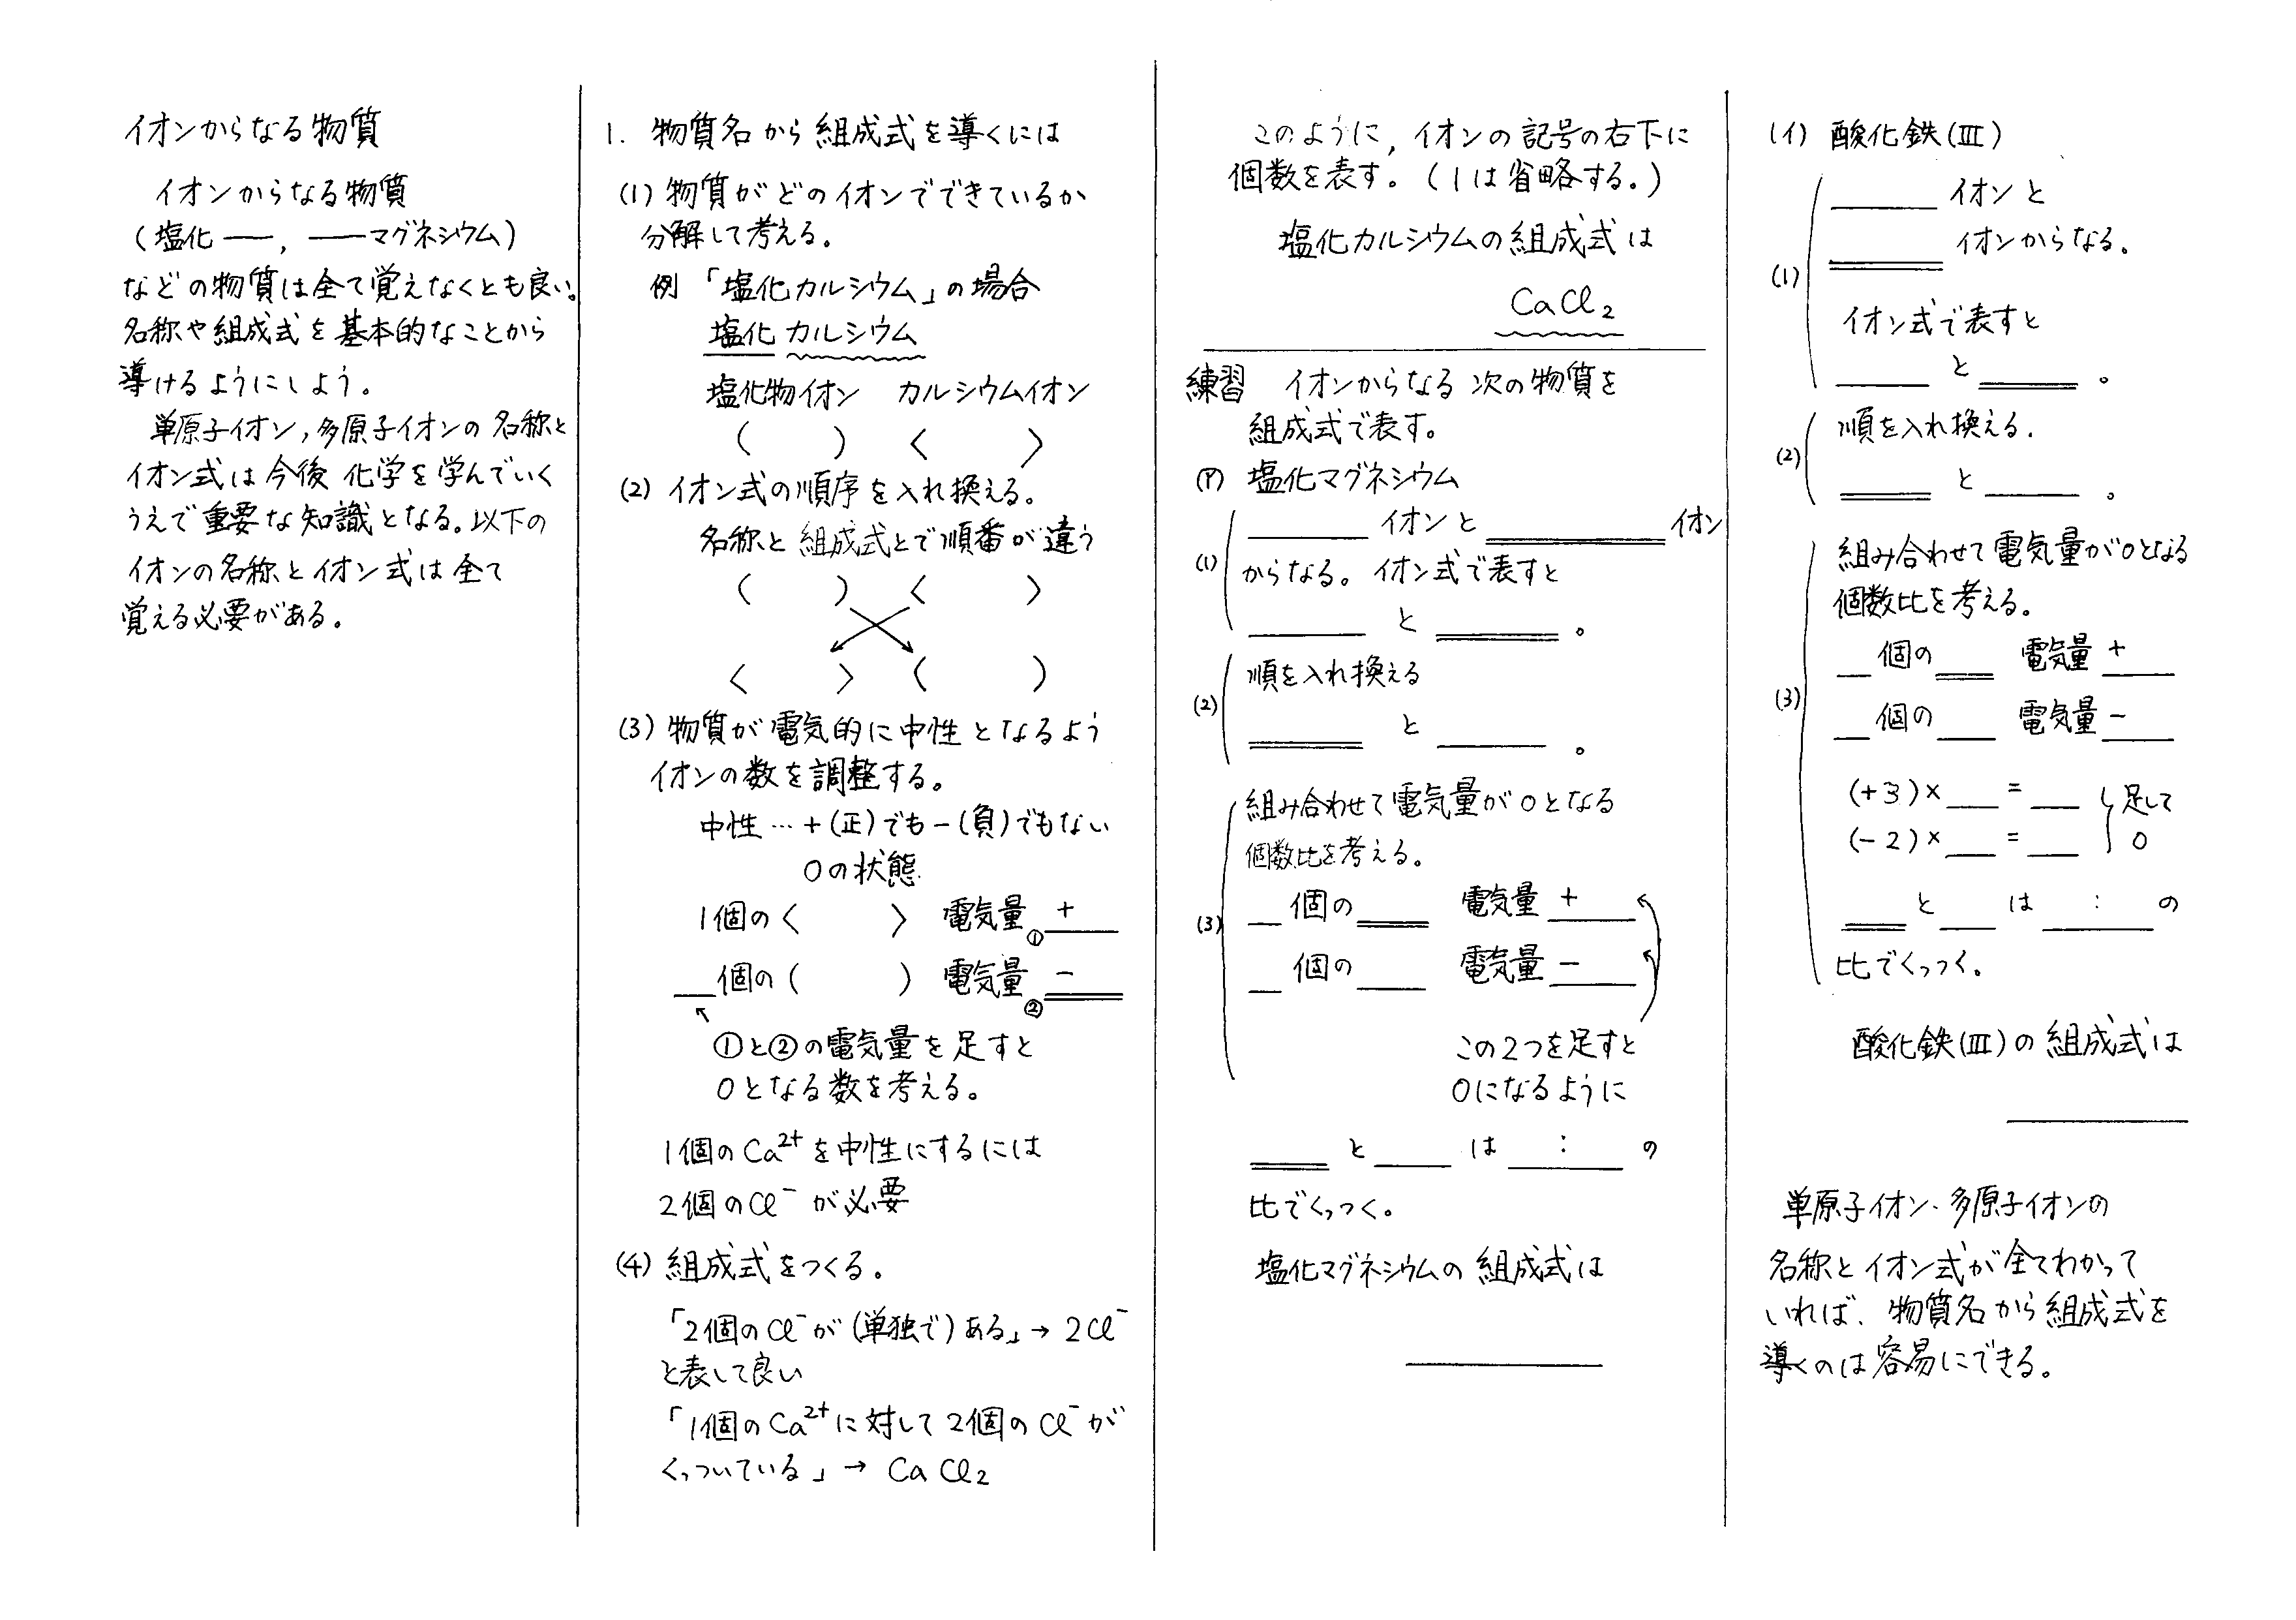 イオンからなる物質
イオンからなる物質
(塩化 ――, ――マグネシウム)
などの物質は全て覚えなくとも良い。
名称や組成式を基本的なことから
導けるようにしよう。
単原子イオン,多原子イオンの名称と
イオン式は今後 化学を学んでいく
うえで重要な知識となる。以下の
イオンの名称とイオン式は全て
覚える必要がある。
1. 物質名から組成式を導くには
(1) 物質がどのイオンでできているか
分解して考える。
例 「塩化カルシウム」の場合
塩化 カルシウム
塩化物イオン カルシウムイオン
( ) 〈 〉
(2) イオン式の順序を入れ換える。
名称と組成式とで順番が違う
( ) 〈 〉
〈 〉 ( )
(3) 物質が電気的に中性となるよう
イオンの数を調整する。
中性 … +(正)でも -(負)でもない
0の状態
1個の〈 〉 電気量 ① +
__個の( ) 電気量 ② -
↖
①と②の電気量を足すと
0となる数を考える。
1個のCa²⁺を中性にするには
2個のCl⁻が必要
(4) 組成式をつくる。
「2個のCl⁻が(単独で)ある」→ 2Cl⁻
と表して良い
「1個のCa²⁺に対して2個のCl⁻が
くっついている」→ CaCl₂
このように,イオンの記号の右下に
個数を表す。(1は省略する。)
塩化カルシウムの組成式は
CaCl₂
練習 イオンからなる次の物質を
組成式で表す。
(ア) 塩化マグネシウム
(1) ____ イオンと ____ イオン
からなる。イオン式で表すと
____ と ____ 。
(2) 順を入れ換える
____ と ____ 。
(3) 組み合わせて電気量が0となる
個数比を考える。
__ 個の ____ 電気量 +
__ 個の ____ 電気量 -
この2つを足すと
0になるように
____ と ____ は __ : __ の
比でくっつく。
塩化マグネシウムの組成式は
____
(イ) 酸化鉄(III)
(1) ____ イオンと
____ イオンからなる.
イオン式で表すと
____ と ____ 。
(2) 順を入れ換える.
____ と ____ 。
(3) 組み合わせて電気量が0となる
個数比を考える。
__ 個の ____ 電気量 +
__ 個の ____ 電気量 -
(+3)× __ = __ 足して
(-2)× __ = __ 0
____ と ____ は __ : __ の
比でくっつく。
酸化鉄(III)の組成式は
____
単原子イオン・多原子イオンの
名称とイオン式が全てわかって
いれば、物質名から組成式を
導くのは容易にできる。